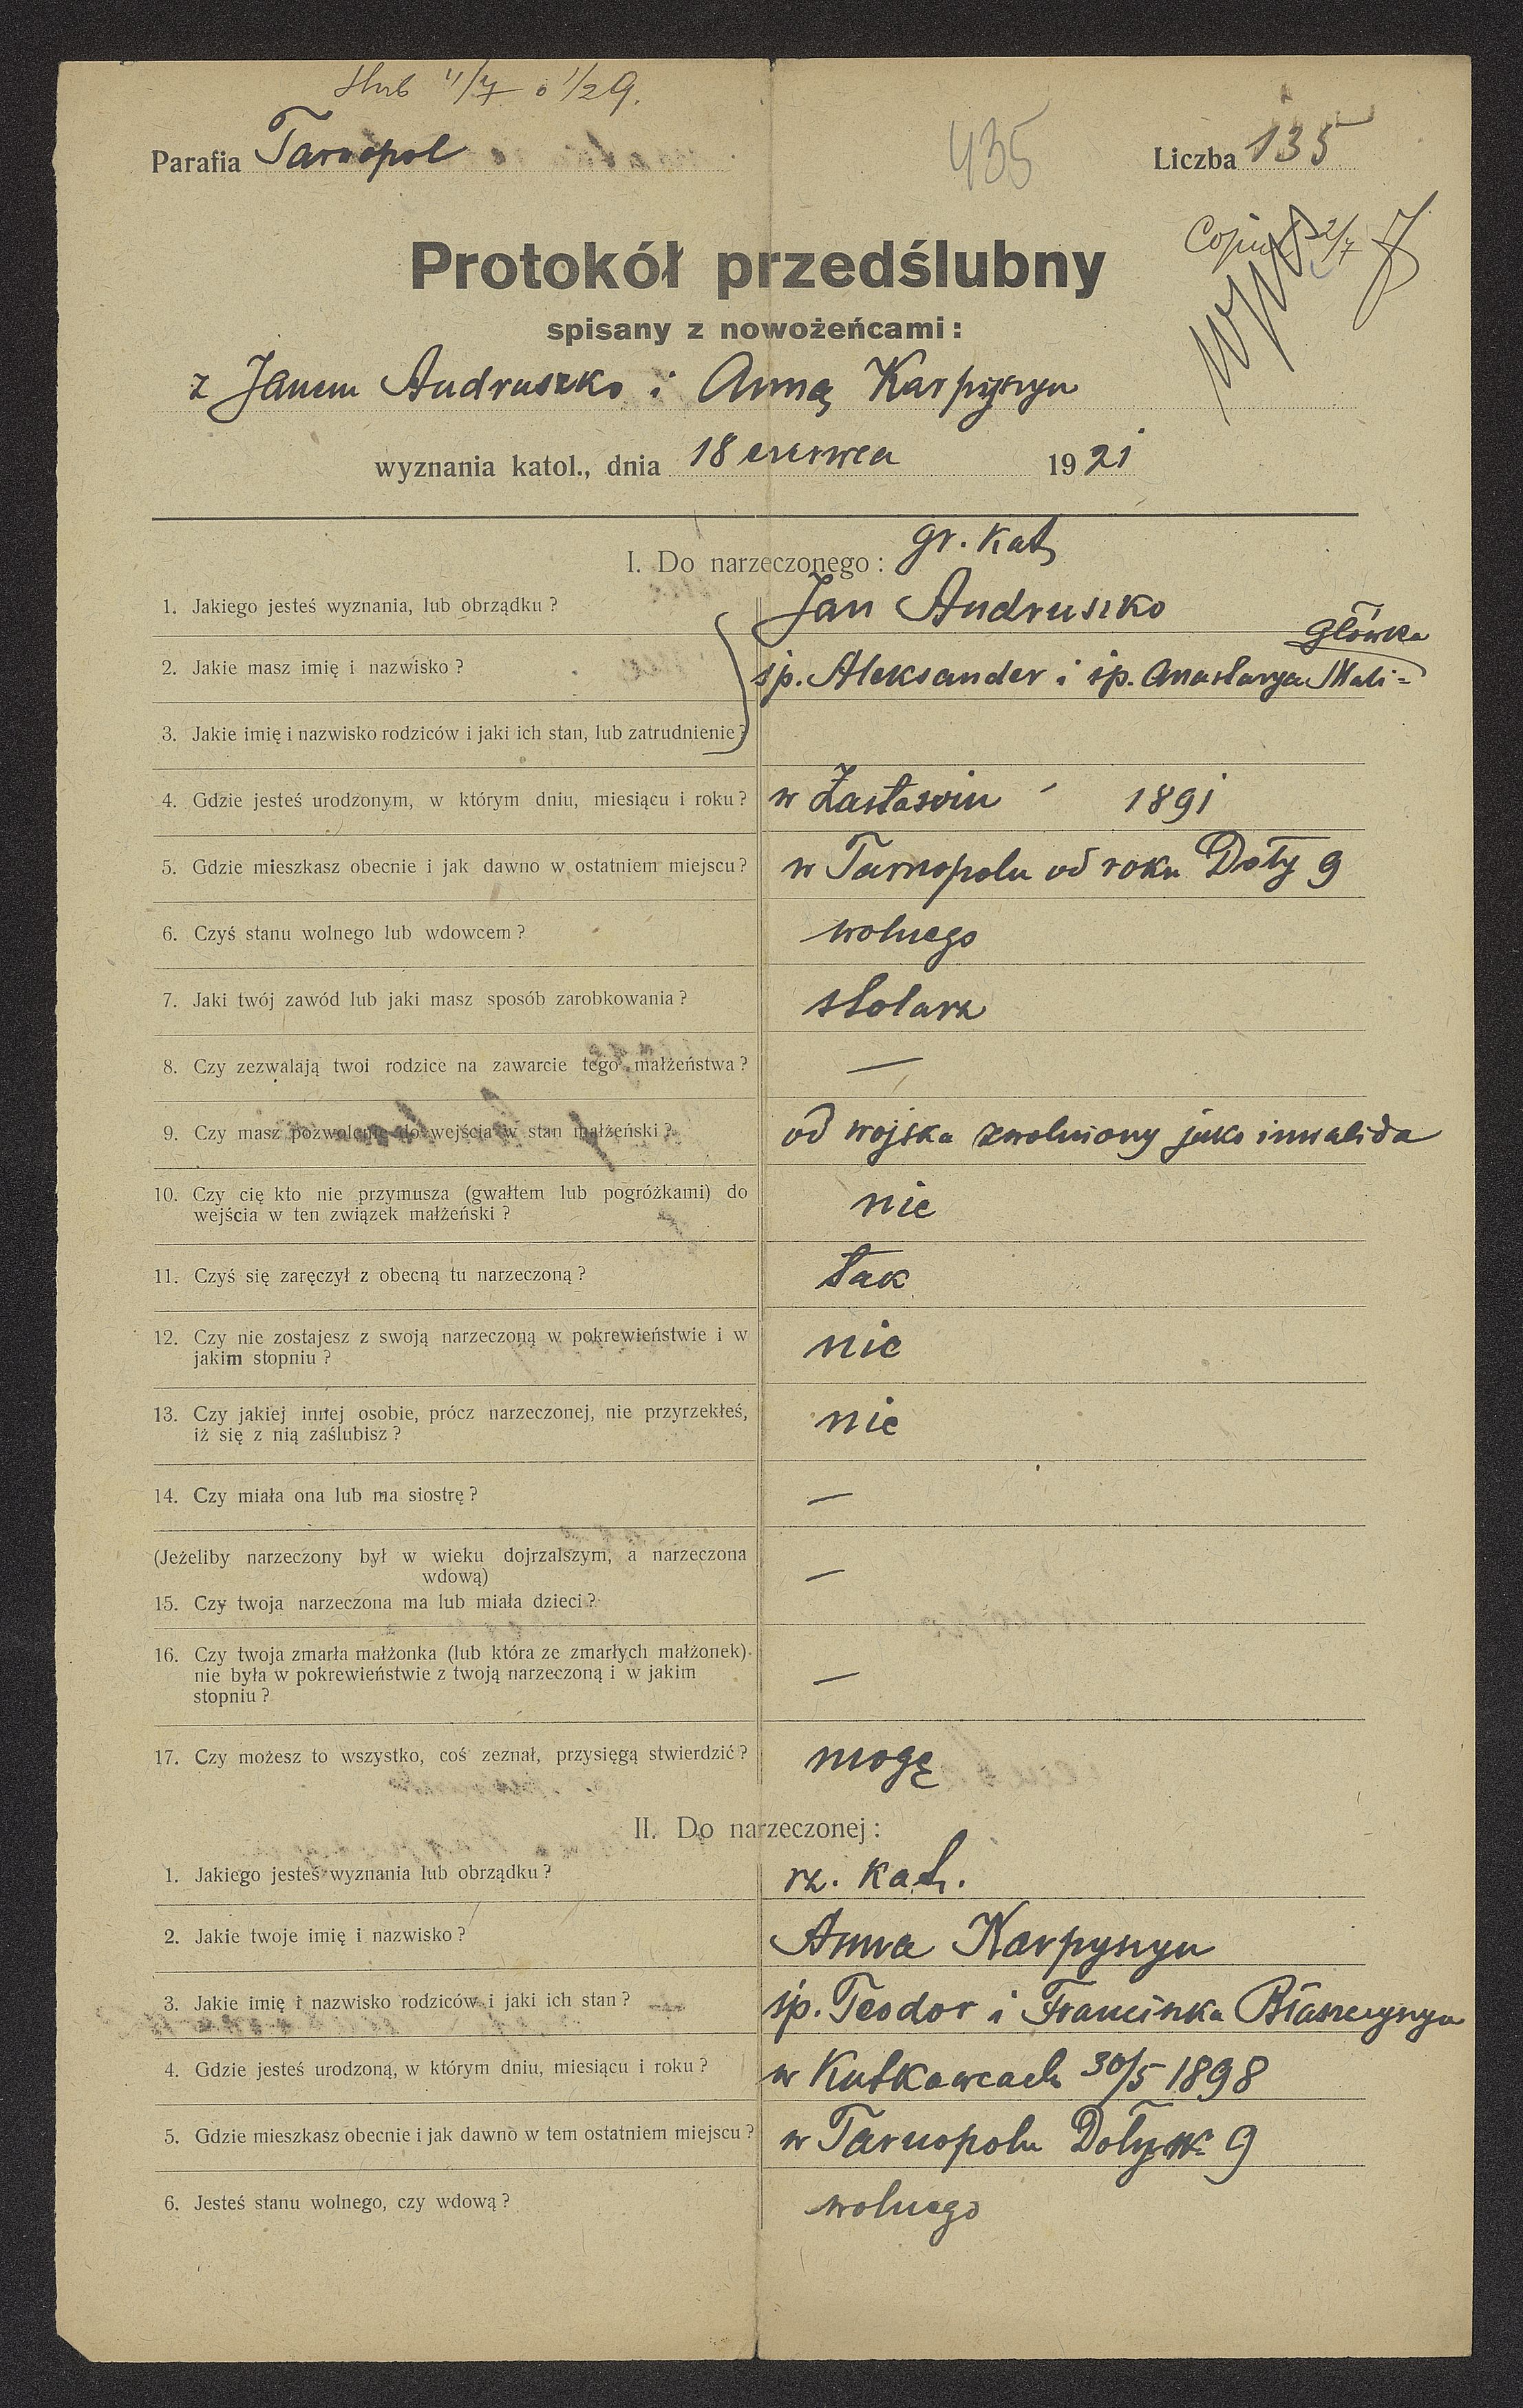 Parafia Tarnopol
435
Liczba 135
Protokół przedślubny
spisany z nowożeńcami:
z Janem Andruszko i Anną Karpyszyn
wyznania katol., dnia 18 czerwca 1921
I. Do narzeczonego: gr. kat
1. Jakiego jesteś wyznania, lub obrządku?
Jan Andruszko
2. Jakie masz imię i nazwisko?
śp. Aleksander i śp. Anastazya Mali=
główka
3. Jakie imię i nazwisko rodziców i jaki ich stan, lub zatrudnienie?
4. Gdzie jesteś urodzonym, w którym dniu, miesiącu i roku? w 1891
5. Gdzie mieszkasz obecnie i jak dawno w ostatniem miejscu? w Tarnopolu od roku Doły 9
6. Czyś stanu wolnego lub wdowcem? wolnego
7. Jaki twój zawód lub jaki masz sposób zarobkowania? stolarz
8. Czy zezwalają twoi rodzice na zawarcie tego małżeństwa? —
9. Czy masz pozwolenie do wejścia w stan małżeński? od wojska zwolniony jako inwalida
10. Czy cię kto nie przymusza (gwałtem lub pogróżkami) do
wejścia w ten związek małżeński? nie
11. Czyś się zaręczył z obecną tu narzeczoną? tak
12. Czy nie zostajesz z swoją narzeczoną w pokrewieństwie i w
jakim stopniu? nie
13. Czy jakiej innej osobie, prócz narzeczonej, nie przyrzekłeś,
iż się z nią zaślubisz? nie
14. Czy miała ona lub ma siostrę? —
(Jeżeliby narzeczony był w wieku dojrzalszym, a narzeczona
wdową)
15. Czy twoja narzeczona ma lub miała dzieci? —
16. Czy twoja zmarła małżonka (lub która ze zmarłych małżonek)
nie była w pokrewieństwie z twoją narzeczoną i w jakim
stopniu? —
17. Czy możesz to wszystko, coś zeznał, przysięgą stwierdzić? mogę
II. Do narzeczonej:
1. Jakiego jesteś wyznania lub obrządku? rz. kat.
2. Jakie twoje imię i nazwisko? Anna Karpyszyn
3. Jakie imię i nazwisko rodziców i jaki ich stan? śp. Teodor i Franciszka Błaszczyszyn
4. Gdzie jesteś urodzoną, w którym dniu, miesiącu i roku? w Kutkowcach 30/5 1898
5. Gdzie mieszkasz obecnie i jak dawno w tem ostatniem miejscu? w Tarnopolu Doły 9
6. Jesteś stanu wolnego, czy wdową? wolnego